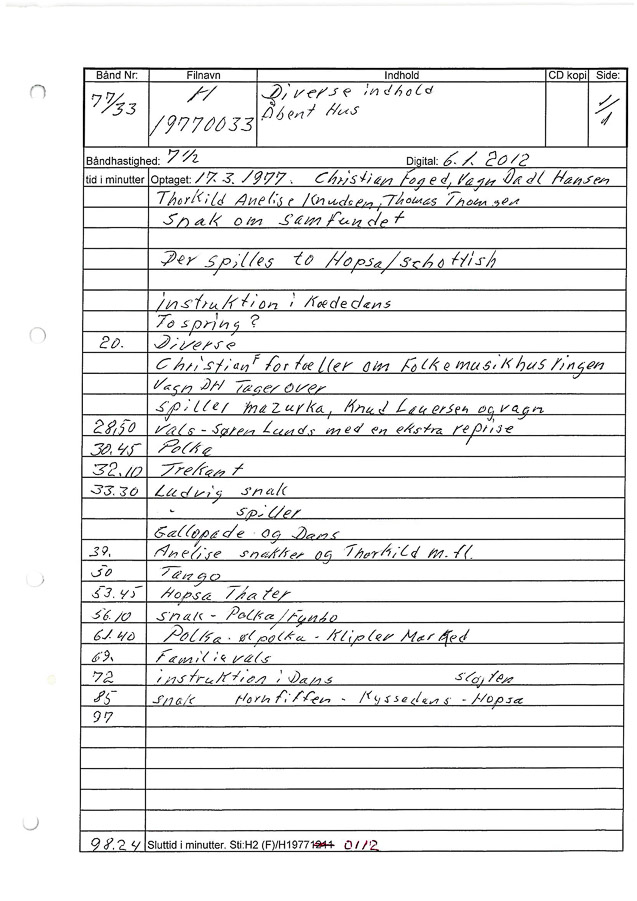 Bånd Nr: Filnavn Indhold CD kopi Side:
77/33 H Diverse indhold 1/1
19770033 Åbent Hus
Båndhastighed: 7 1/2 Digital: 6.1.2012
tid i minutter Optaget: 17.3.1977. Christian Foged, Vagn Dahl Hansen
Thorkild Anelise Knudsen, Thomas Thomsen
Snak om samfundet
Der spilles to Hopsa/schottish
instruktion i Kædedans
To spring?
20. Diverse
Christian F fortæller om Folkemusikhusringen
Vagn DH Tager over
spiller mazurka, Knud Lauersen og vagn
28,50 Vals - Søren Lunds med en ekstra repriise
30.45 Polka
32.10 Trekant
33.30 Ludvig snak
- spiller
Gallopade og Dans
39. Anelise snakker og Thorkild m.fl.
50 Tango
53.45 Hopsa Thater
56.10 snak - Polka/Fynbo
61.40 Polka - ølpolka - Kliplev Marked
69. Familievals
72 instruktion i Dans sløjfen
85 snak Hornfiffen - Kyssedans - Hopsa
97
98.24 Sluttid i minutter. Sti:H2 (F)/H1977 0112